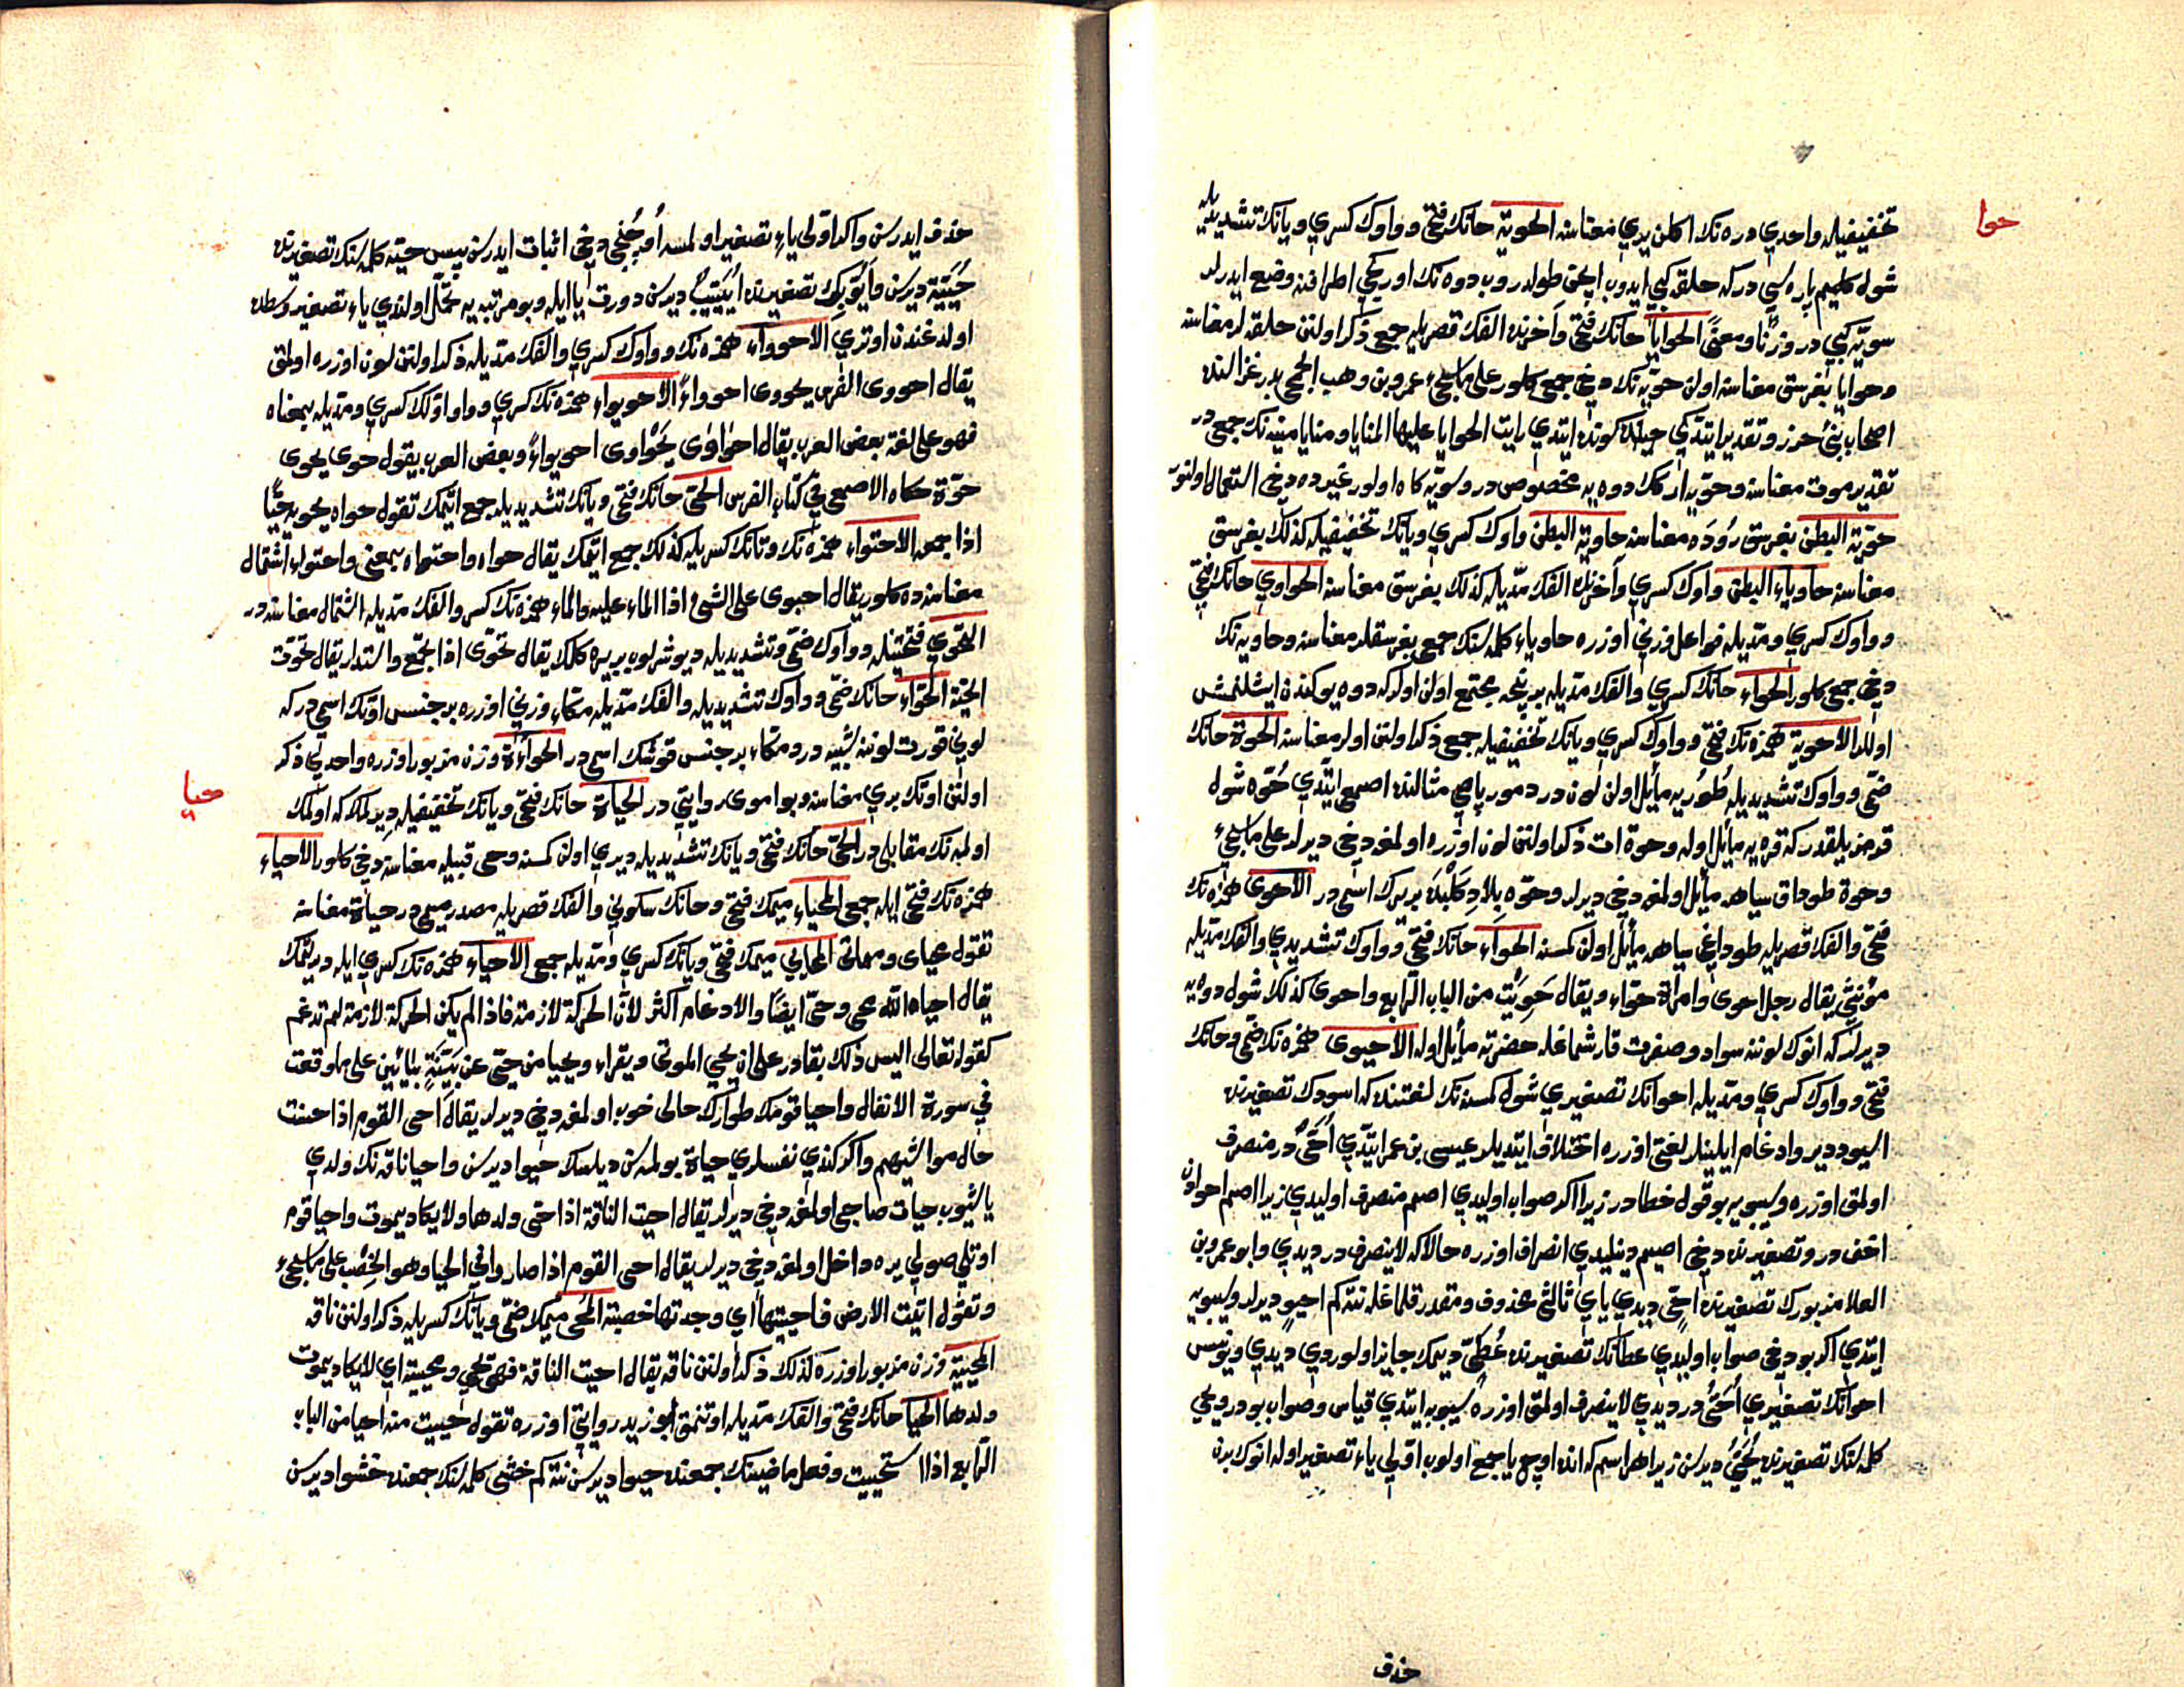 حوا
تخفيفيله واحدي دره نك اكلن يري معناسنه الحوية حانك فتحي وواوك كسري ويانك تشديديله
شول كليم پاره سي در كه حلقه كبي ايدوب ايچن طولدروب دوه نك اوركجي اطرافنه وضع ايدرلر
سويه كبي در وزنا ومعنى الحوايا حانك فتحي وآخرنده الفك قصريله جمع ذكر اولنن حلقه لر معناسنه
وحوايا بغرسق معناسنه اولن حويه نك دخي جمعي كلور على ما سيجيء عمرو بن وهب الجمحي بدر غزالنده
اصحاب بنئ حرز وتقدير ايتدكي حينده كوندا ايتدي رايت الحوايا عليها المنايا ومنايا منيه نك جمعي در
تقدير موت معناسنه وحويه اركك دوه يه مخصوص در وسويه كاه اولور غيرده دخي استعمال اولنور
حوية البطن بغرسق رودَه معناسنه حاوية البطن واوك كسري ويانك تخفيفيله كذلك بغرسق
معناسنه حاوياء البطن واوك كسري وآخرنك الفك مديله كذلك بغرسق معناسنه الحواوي حانك فتحي
وواوك كسري ومديله فواعل وزني اوزره حاوياء كلمه سنك جمعي بغرسقلر معناسنه وحاويه نك
دخي جمعي كلور الحواء حانك كسري والفك مديله بر نيچه مجتمع اولن اولركه دوه يوكندن ايشلنمش
اوللر الاحوية همزه نك فتحي وواوك كسري ويانك تخفيفيله جمع ذكر اولنن اولر معناسنه الحوة حانك
ضمي وواوك تشديديله طوريه مايل اولن لون در دمور پاصي مثالنده اصمعي ايتدي حُوّه شول
قرمزيلقدر كه قره يه مايل اوله وحوة ات ذكر اولنن لون اوزره اولمغه دخي ديرلر على ما سيجيء
وحوة طوداق سياهه مايل اولمغه دخي ديرلر وحوّه بلاد كلبده بر يرك اسمي در الاحوى همزه نك
فتحي والفك قصريله طوداغي سياهه مايل اولن كمسنه الحواء حانك فتحي وواوك تشديدي والفك مديله
مؤنثي يقال رجل احوى وامراة حواء ويقال حَوِيَتْ من الباب الرابع واحوى كذلك شول دوه يه
ديرلر كه انوك لوننه سواد وصفرت قارشماغله حضرته مايل اوله الاحيوى همزه نك ضمي وحانك
فتحي وواوك كسري ومديله احوانك تصغيري شول كمسنه نك لغتنده كه اسودك تصغيرنده
اسيود دير وادغام ايلينلر لغتي اوزره اختلاف ايتديلر عيسى بن عمر ايتدي اُحَيٌّ در منصرف
اولمق اوزره وسيبويه بو قول خطا در زيرا اكر صواب اوليدي اصم منصرف اوليدي زيرا اصم احوادن
اخف در وتصغيرنده دخي اصيم دينليدي انصراف اوزره حالا كه لاينصرف در ديدي وابو عمرو بن
العلا مزبورك تصغيرنده اُحَيٍّ ديدي ياي ثالثي محذوف ومقدر قلماغله نته كم احيوٍ ديرلر وسيبويه
ايتدي اكر بو دخي صواب اوليدي عطانك تصغيرنده عُطَيٍّ ديمك جايز اولوردي ديدي ويونس
احوانك تصغيري اُحَيُّ در ديدي لاينصرف اولمق اوزره سيبويه ايتدي قياس وصواب بودر ويحيى
كلمه سنك تصغيرنده يُحَيُّ ديرسن زيرا هر اسم كه انده اوچ يا جمع اولوب اولي ياء تصغير اوله انوك برن
حذف
حذف ايدرسن واكر اولى ياء تصغير اولمسه اوچني دخي اثبات ايدرسن پس حيّه كلمه سنك تصغيرنده
حُيَيّة ديرسن وأيّوبك تصغيرنده اُيَيّيب ديرسن دورت يا ايله وبو مرتبه يه تحمل اولندي ياء تصغير وسطده
اولدغندن اوتري الاحوواء همزه نك وواوك كسري والفك مديله ذكر اولنن لون اوزره اولمق
يقال احووى الفرس يحووى احوواءً الاحويواء همزه نك كسري وواو اولك كسري ومديله بمعناه
فهو على لغة بعض العرب يقال احواوى يحواوى احويواءً وبعض العرب يقول حوى يحوى
حوّة حكاه الاصمعي في كتاب الفرس الحيّ حانك فتحي ويانك تشديديله جمع ايتمك تقول حواه يحويه حيًّا
اذا جمعه الاحتواء همزه نك وتانك كسريله كذلك جمع ايتمك يقال حواه واحتواه بمعنى واحتواء اشتمال
معناسنده كلور يقال احبوى على الشئ اذا الماء عليه والماء همزه نك كسر والفك مديله اشتمال معناسنه در
التحوّي فتحتينله وواوك ضمي وتشديديله ديوشرلوب بر يره كلمك يقال تحوّى اذا تجمّع واستدار يقال تحوّت
الحيّة الحوّاء حانك ضمي وواوك تشديديله والفك مديله مكّاء وزني اوزره بر جنس اوتك اسمي در كه
لوني قورت لوننه شبيه در ومكّاء بر جنس قوشك اسمي در الحوّاءة وزن مزبور اوزره واحدي ذكر
حيا
اولنن اوتك بري معناسنه وبو اموى روايتي در الحياة حانك فتحي ويانك تخفيفيله ديرلمك كه اولمك
اولمه نك مقابلي در الحيّ حانك فتحي ويانك تشديديله ديري اولن كمسنه وحى قبيله معناسنه دخي كلور الاحياء
همزه نك فتحي ايله جمعي المحياء ميمك فتحي وحانك سكوني والفك قصريله مصدر ميمي در حياة معناسنه
تقول محياى ومماتى المحايي ميمك فتحي ويانك كسري ومديله جمعي الاحياء همزه نك كسري ايله ديرلتمك
يقال احياه الله محى وحيّ ايضًا والادغام اكثر لانّ الحركة لازمة فاذا لم يكن الحركة لازمة لم تدغم
كقوله تعالى اليس ذلك بقادر على ان يحيي الموتى ويقراء ويحيا من حيّى عن بَيّنَةٍ بيائين على ما وقعت
في سورة الانفال واحيا قومك طوارلرك حالى خوب اولمغه دخي ديرلر يقال احى القوم اذا حسنت
حال مواشيهم واكر كندي نفسلري حياة بولمسن ديلسك حيوا ديرسن واحيا ناقه نك ولدي
ياشيوب حيات صاحبي اولمغه دخي ديرلر تقال احيت الناقة اذا حيّى ولدها ولا يكاد يموت واحيا قوم
اوتلي صولي يره داخل اولمغه دخي ديرلر يقال احيى القوم اذا صاروا في الحيا وهو الخِصْب على ما سيجيء
وتقول اتيت الارض فاحييتها اي وجدتها خصبة المُحْى ميمك ضمي ويانك كسريله ذكر اولنن ناقه
المحيية وزن مزبور اوزره كذلك ذكر اولنن ناقه يقال احيت الناقة فهى محي ومحيية اي لا يكاد يموت
ولدها الحيا حانك فتحي والفك مديله اوتنمق ابو زيد روايتي اوزره تقول حييت منه احيا من الباب
الرابع اذا استحييت وفعل ماضينك جمعنده حيوا ديرسن نته كم خشى كلمه سنك جمعنده خشوا ديرسن